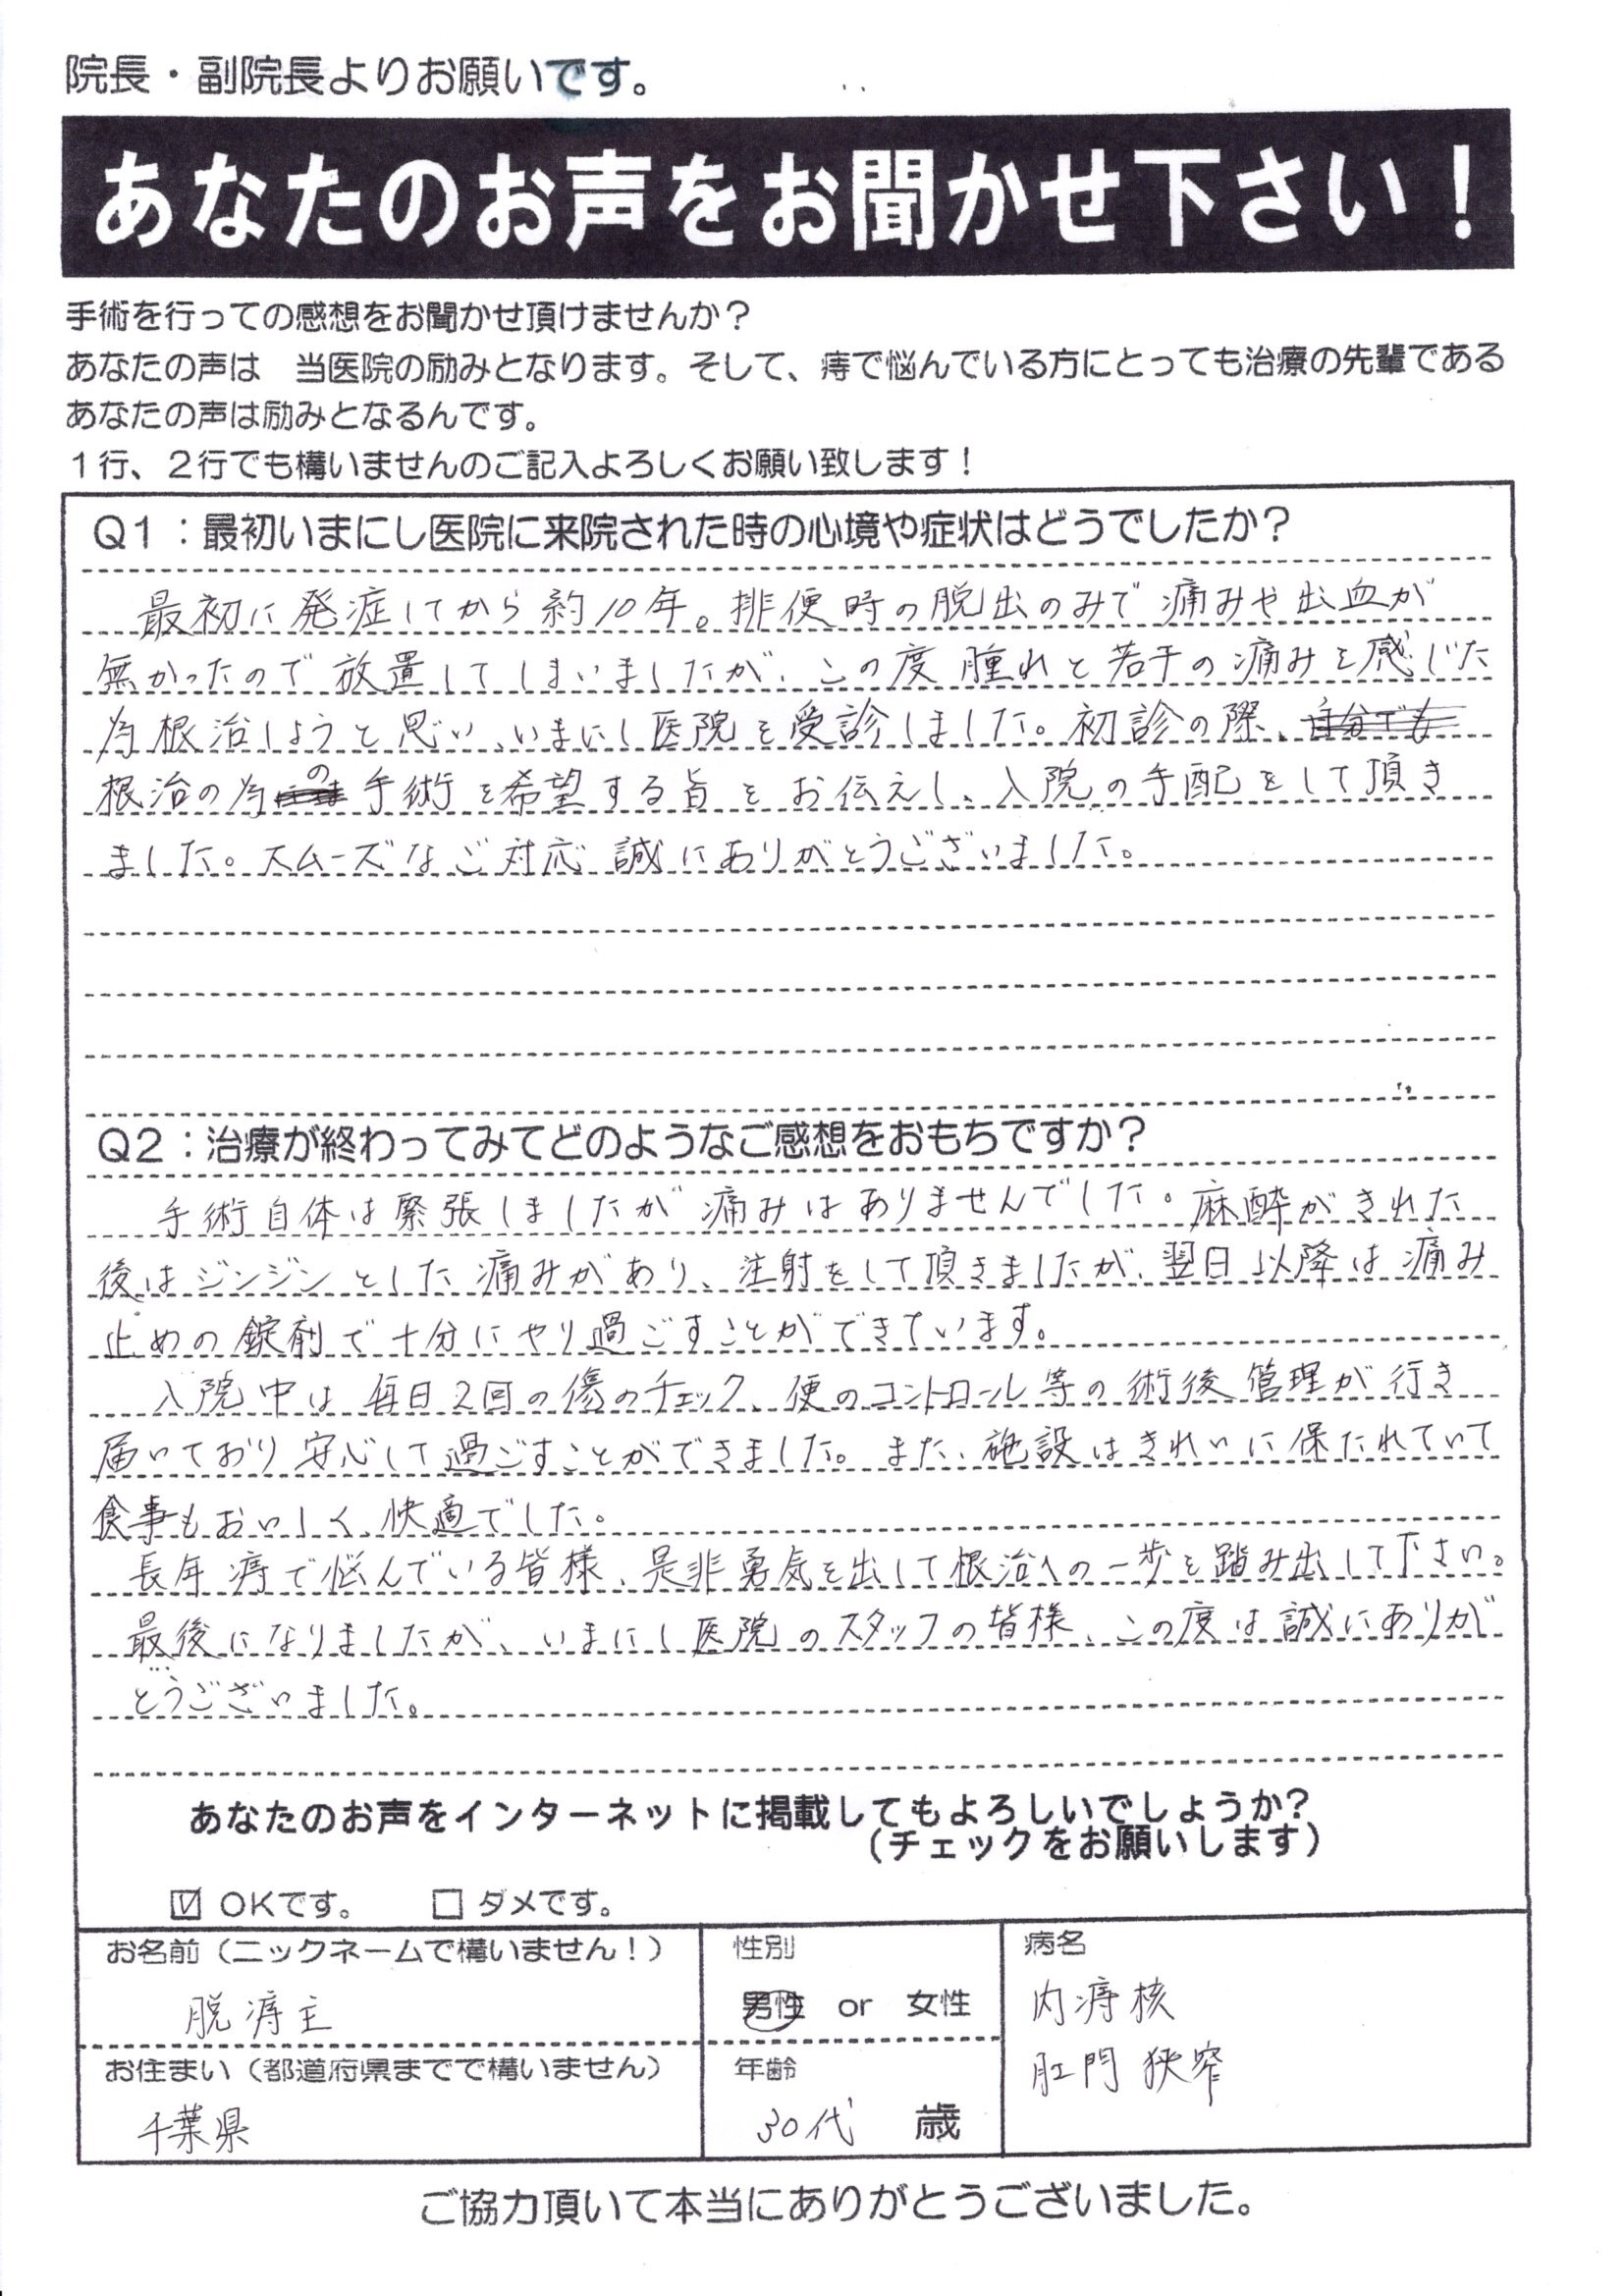 院長・副院長よりお願いです。
あなたのお声をお聞かせ下さい！
手術を行っての感想をお聞かせ頂けませんか？
あなたの声は　当医院の励みとなります。そして、痔で悩んでいる方にとっても治療の先輩である
あなたの声は励みとなるんです。
１行、２行でも構いませんのご記入よろしくお願い致します！
Q1：最初いまにし医院に来院された時の心境や症状はどうでしたか？
最初に発症してから約10年。排便時の脱出のみで痛みや出血が
無かったので放置してしまいましたが、この度腫れと若干の痛みを感じた
為根治しようと思い、いまにし医院を受診しました。初診の際、自分でも
根治の為の手術を希望する旨をお伝えし、入院の手配をして頂き
ました。スムーズなご対応誠にありがとうございました。
Q2：治療が終わってみてどのようなご感想をおもちですか？
手術自体は緊張しましたが痛みはありませんでした。麻酔がきれた
後はジンジンとした痛みがあり、注射をして頂きましたが、翌日以降は痛み
止めの錠剤で十分にやり過ごすことができています。
入院中は毎日2回の傷のチェック、便のコントロール等の術後管理が行き
届いており安心して過ごすことができました。また、施設はきれいに保たれていて
食事もおいしく、快適でした。
長年痔で悩んでいる皆様、是非勇気を出して根治への一歩を踏み出して下さい。
最後になりましたが、いまにし医院のスタッフの皆様、この度は誠にありが
とうございました。
あなたのお声をインターネットに掲載してもよろしいでしょうか？
（チェックをお願いします）
☑ OKです。　□ ダメです。
お名前（ニックネームで構いません！）　性別　病名
脱痔主　男性　or　女性　内痔核
お住まい（都道府県までで構いません）　年齢　肛門狭窄
千葉県　30代　歳
ご協力頂いて本当にありがとうございました。